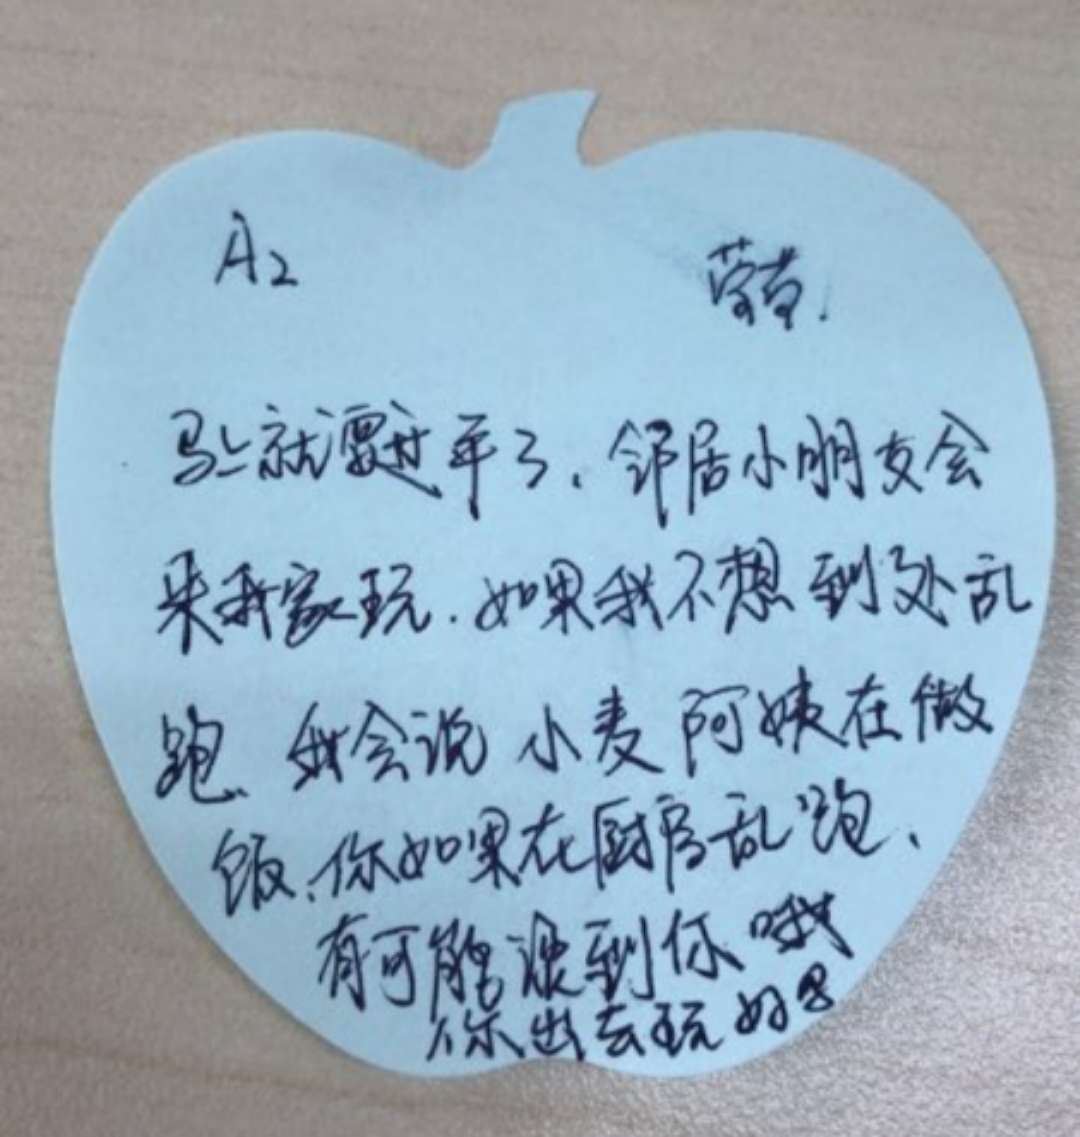 A2
马上就要过年了、邻居小朋友会
来我家玩.如果我不想到处乱
跑、我会说 小麦阿姨在做
饭、你如果在厨房乱跑、
有可能误到你哦
你出去玩好